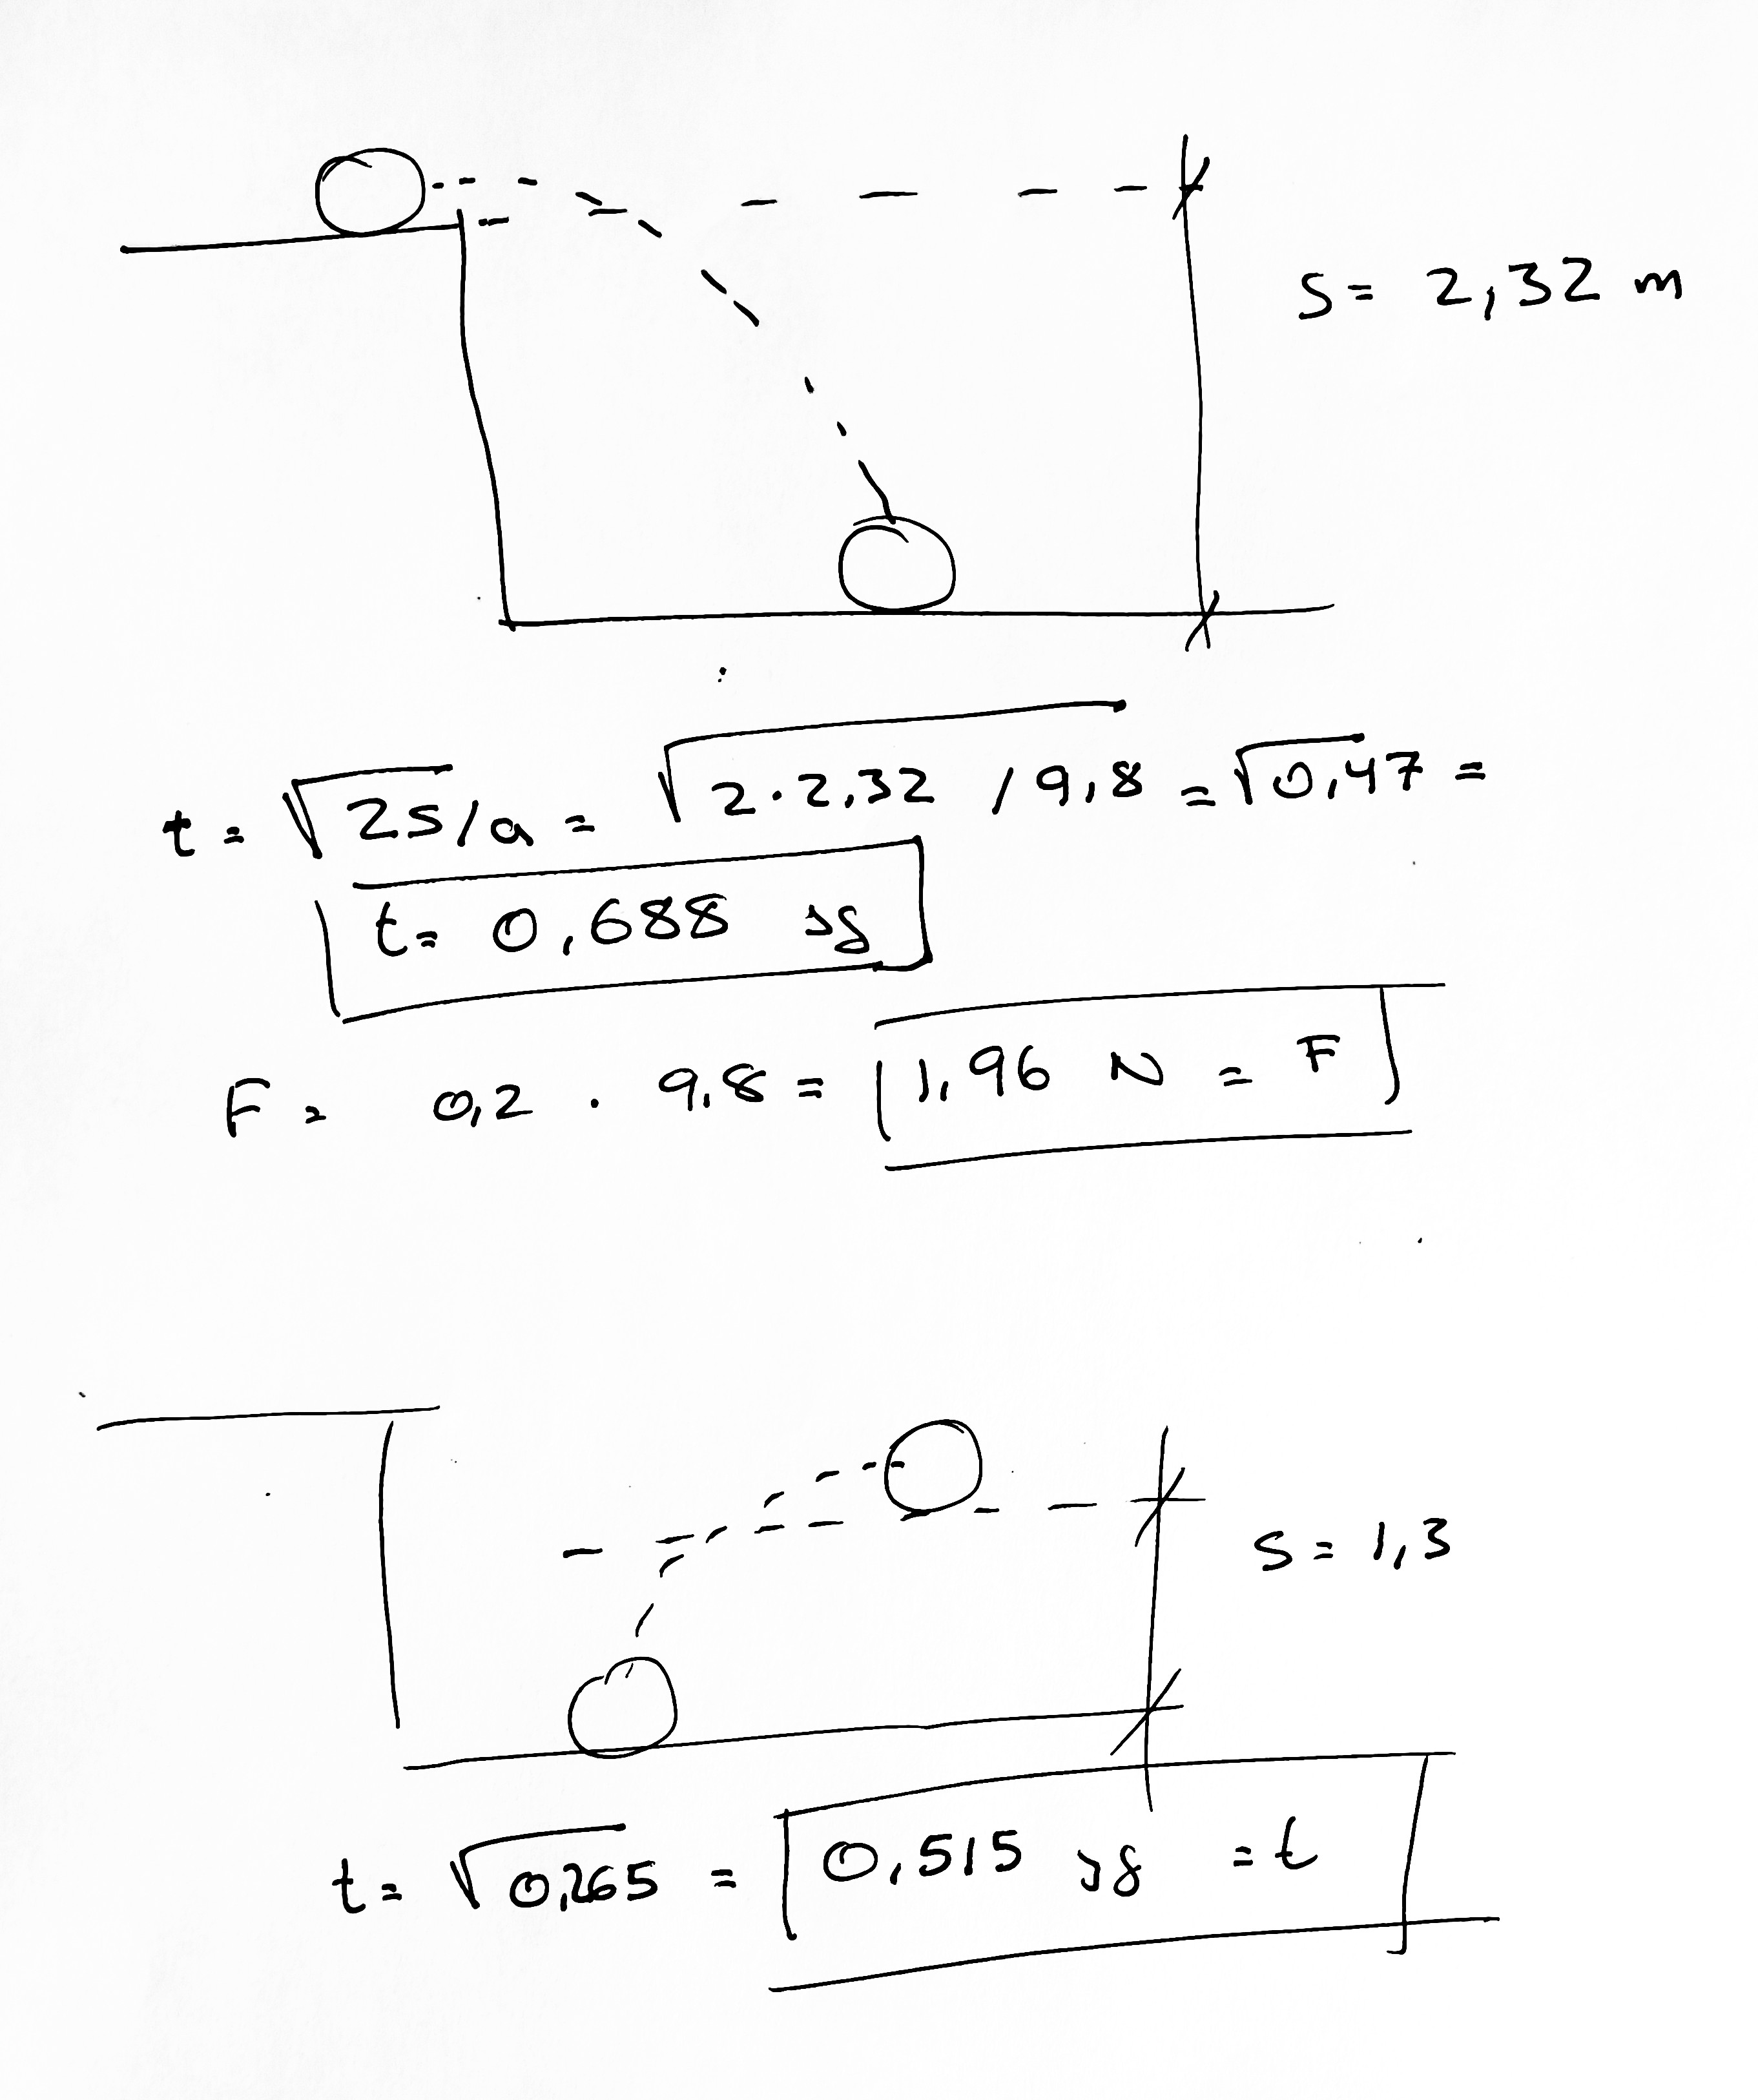 S= 2,32 m
t = √2s/a = √2·2,32 / 9,8 = √0,47 =
t= 0,688 sg
F = 0,2 · 9,8 = 1,96 N = F
S= 1,3
t= √0,265 = 0,515 sg = t